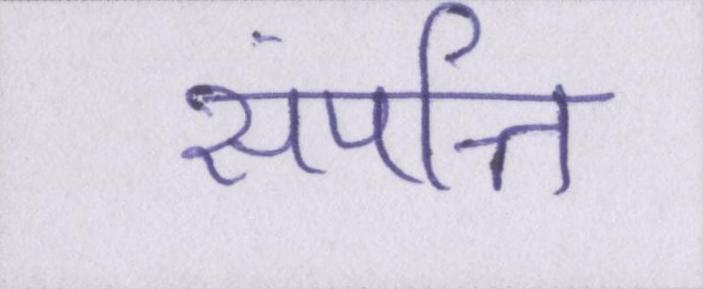 संपत्ति